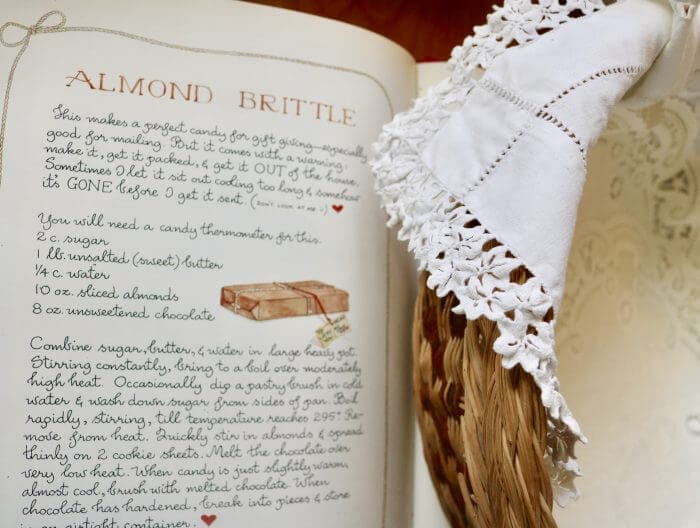 ALMOND BRITTLE
This makes a perfect candy for gift giving—especially
good for mailing. But it comes with a warning:
make it, get it packed, & get it OUT of the house.
Sometimes I let it sit out cooling too long & somehow
it's GONE before I get it sent. (DON'T LOOK AT ME :) ♥
You will need a candy thermometer for this.
2 c. sugar
1 lb. unsalted (sweet) butter
1/4 c. water
10 oz. sliced almonds
8 oz. unsweetened chocolate
Combine sugar, butter, & water in large heavy pot.
Stirring constantly, bring to a boil over moderately
high heat. Occasionally dip a pastry brush in cold
water & wash down sugar from sides of pan. Boil
rapidly, stirring, till temperature reaches 295° Re-
move from heat. Quickly stir in almonds & spread
thinly on 2 cookie sheets. Melt the chocolate over
very low heat. When candy is just slightly warm,
almost cool, brush with melted chocolate. When
chocolate has hardened, break into pieces & store
in an airtight container. ♥